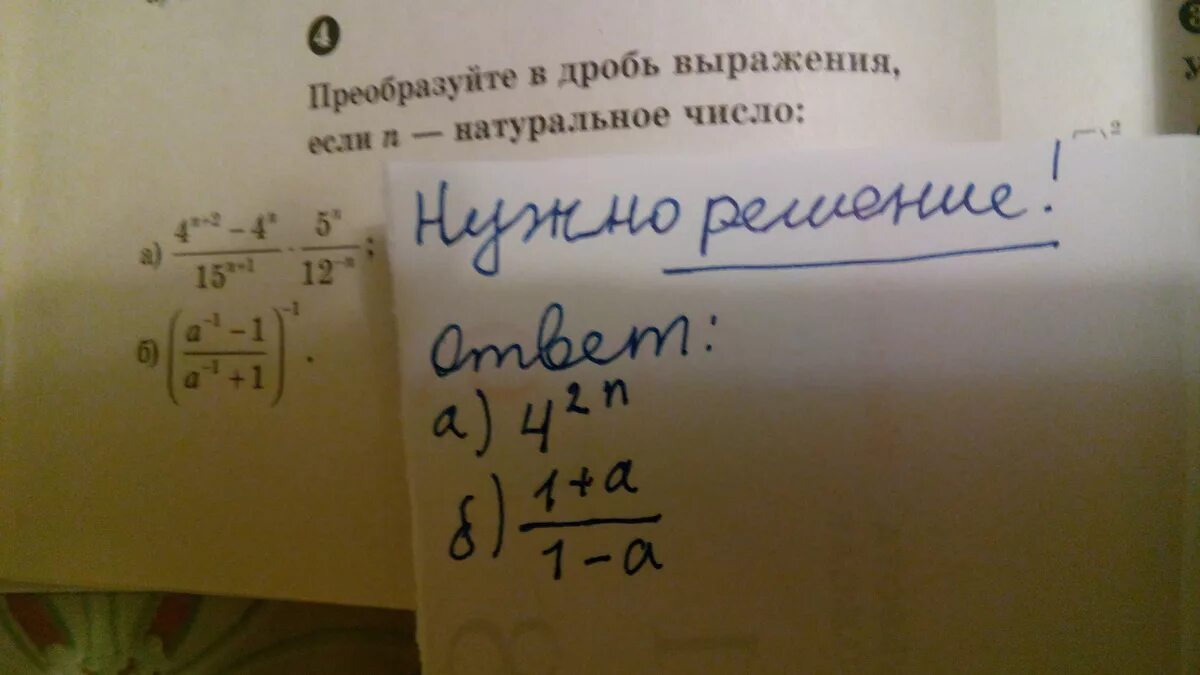 4
Преобразуйте в дробь выражения,
если n — натуральное число:
а) (4ⁿ⁺² − 4ⁿ)/(15ⁿ⁺¹) · 5ⁿ/(12⁻ⁿ);
б) ((a⁻¹ − 1)/(a⁻¹ + 1))⁻¹.
Нужно решение!
Ответ:
а) 4²ⁿ
б) (1+a)/(1−a)